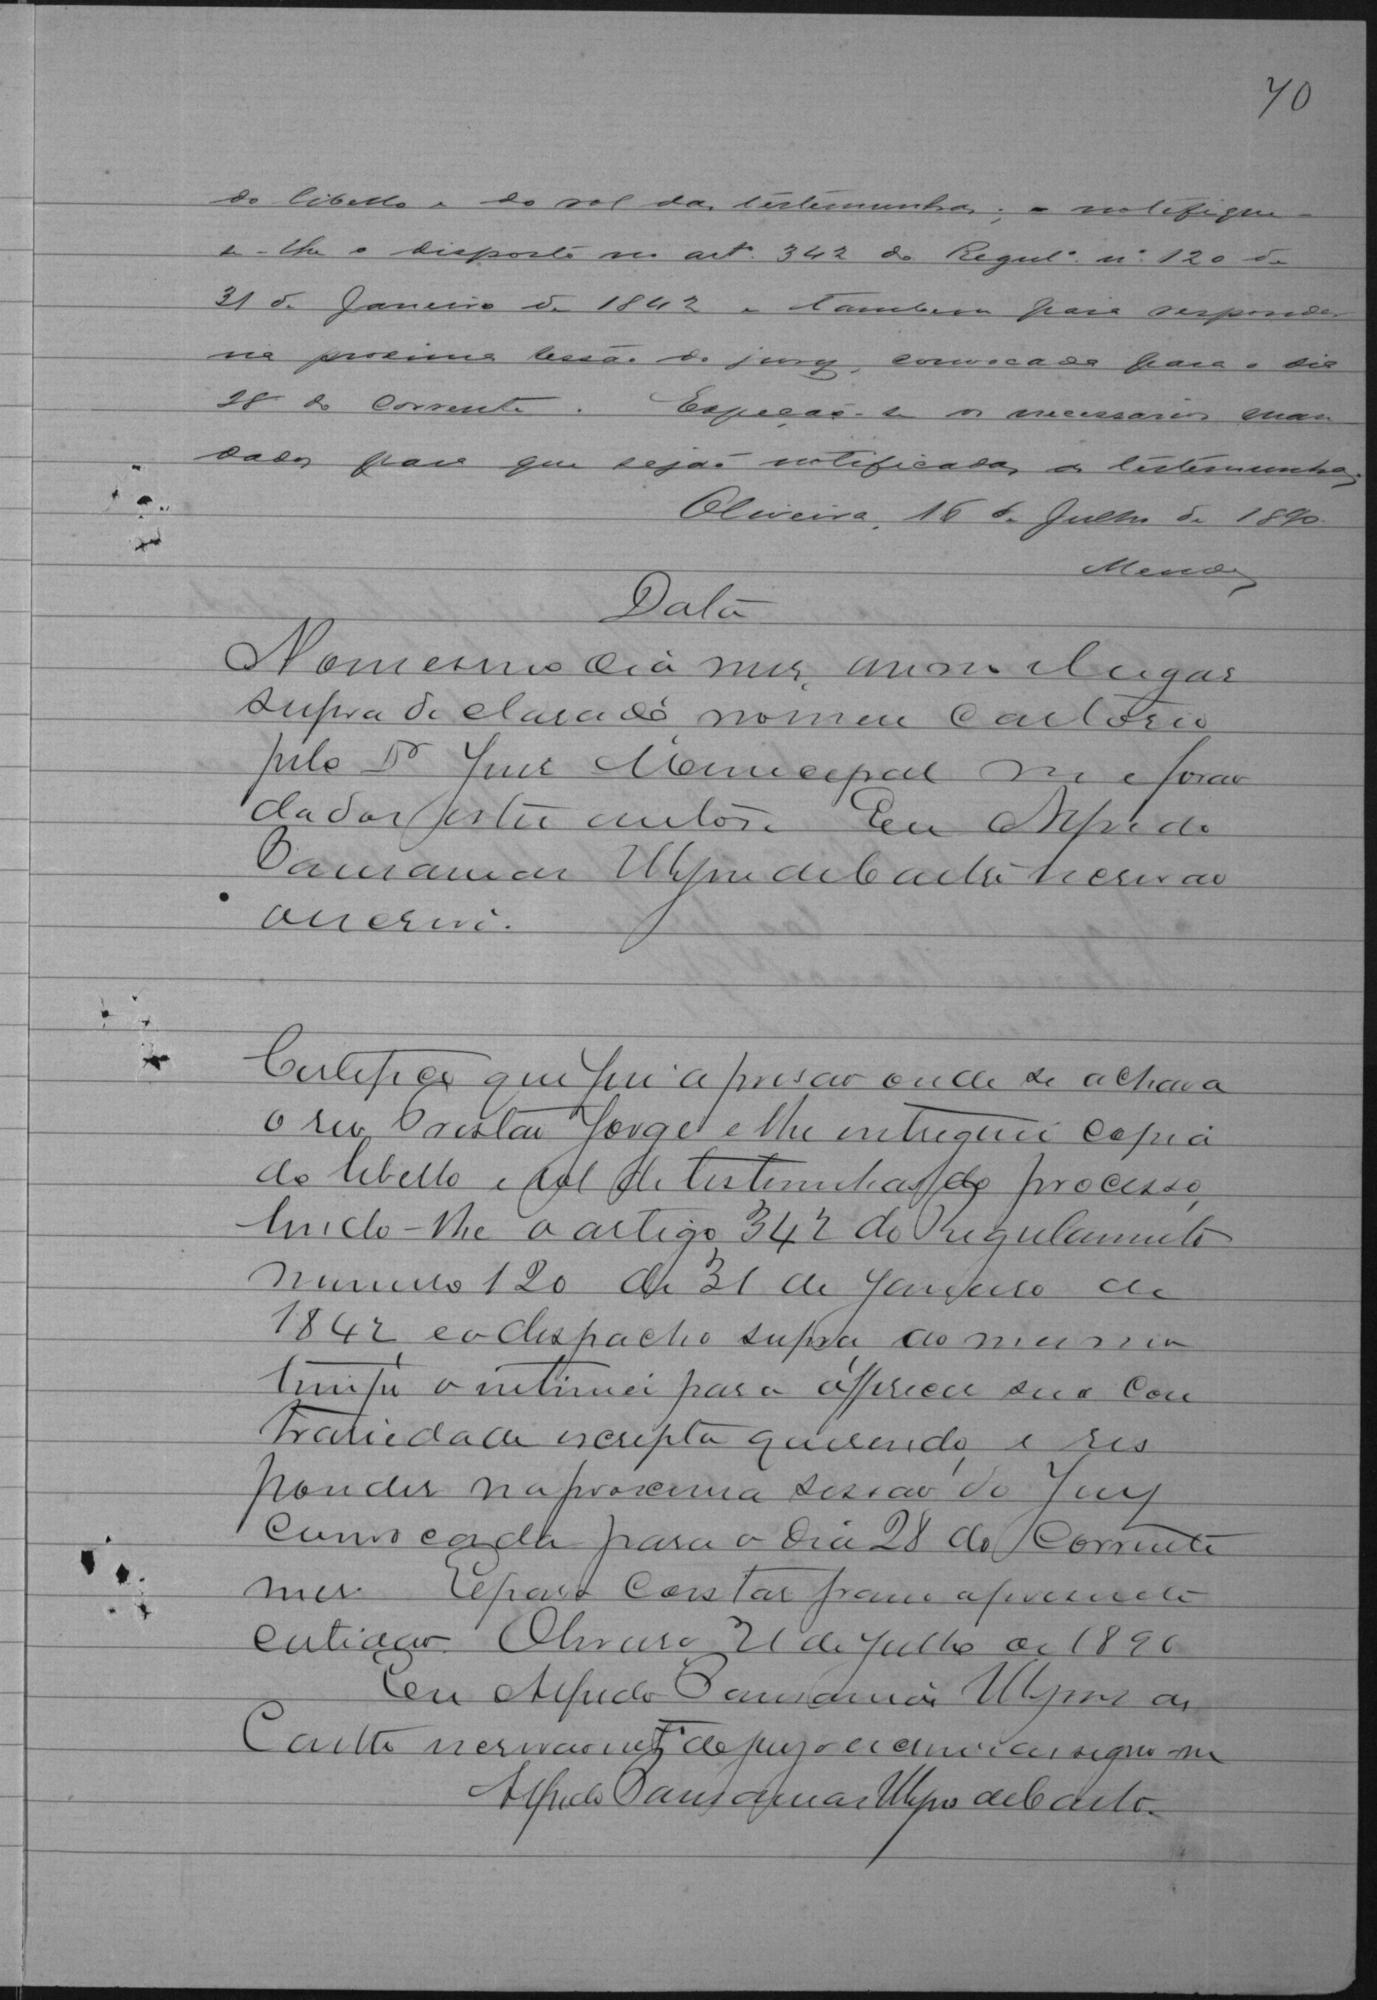 70
do libello e do rol das testemunhas; e notifique-
se-lhe o disposto no art. 342 do Regul.º n.º 120 de
31 de Janeiro de 1842 e tambem para responder
na proxima sessão do jury, convocada para o dia
28 do corrente. Expeção-se os necessarios man
dados para que sejão notificadas as testemunhas
Oliveira, 16 de Julho de 1890.
Mendes
Data
No mesmo dia mez, anno e lugar
supra declarado, no meu cartorio
pelo Dr Juiz Municipal me forão
dados estes autos. Eu Alfredo
de Castro escrivão
o escrevi.
Certifico que fui a prisão onde se achava
o reo Jorge e lhe entreguei copia
do libello e rol de testemunhas do processo,
lendo-lhe o artigo 342 do Regulamento
numero 120 de 31 de Janeiro de
1842, e o despacho supra, ao mesmo
tempo o intimei para offerecer sua con
trariedade escripta querendo, e res
ponder na proxima sessão do Jury
convocada para o dia 28 do corrente
mez. E para constar passo a presente
certidão. Oliveira 21 de Julho de 1890
Eu Alfredo de
Castro escrivão do jury o escrevi e assigno-me
Alfredo de Castro.